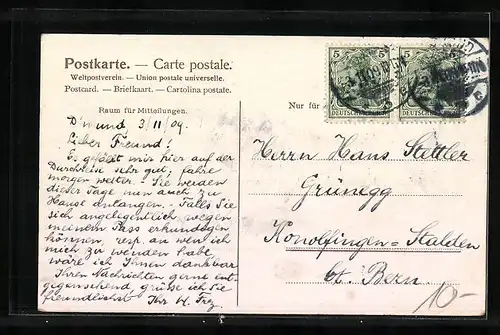 Postkarte. — Carte postale.
Weltpostverein. — Union postale universelle.
Postcard. — Briefkaart. — Cartolina postale.
Raum für Mitteilungen.
Nur für
5 5 5 5
DEUTSCHES REICH DEUTSCHES REICH
D'mund, 3/11/09.
Lieber Freund!
Es gefällt mir hier auf der
Durchreise sehr gut, fahre
morgen weiter. Sie werden
dieser Tage nun auch zu
Hause anlangen. Falls Sie
sich angelegentlich wegen
meinem Pass erkundigen
können, resp. an wen ich
mich zu wenden habe
wäre ich Ihnen dankbar
Ihren Nachrichten gerne ent-
gegensehend, grüße ich Sie
freundlichst, Ihr
Herrn Hans Stettler
Grünegg
Konolfingen-Stalden
bf. Bern.
10-